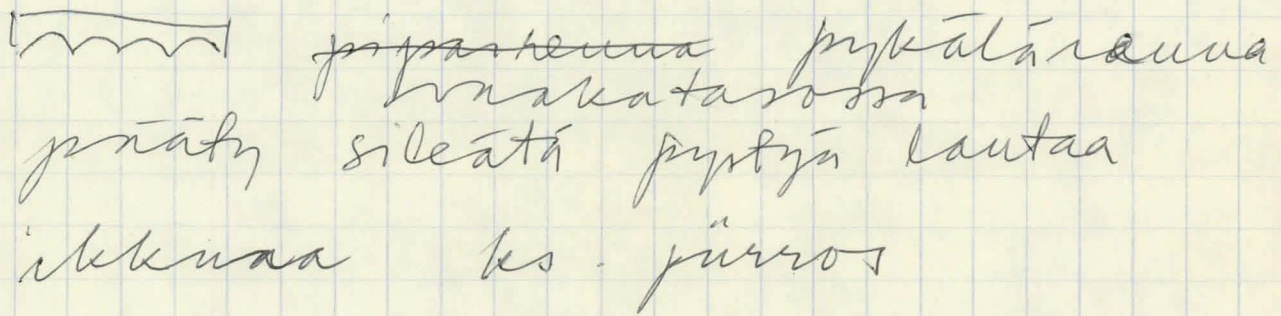 piparreuna pykäläreuna
vaakatasossa
pääty sileätä pystyä lautaa
ikkunaa ks. piirros